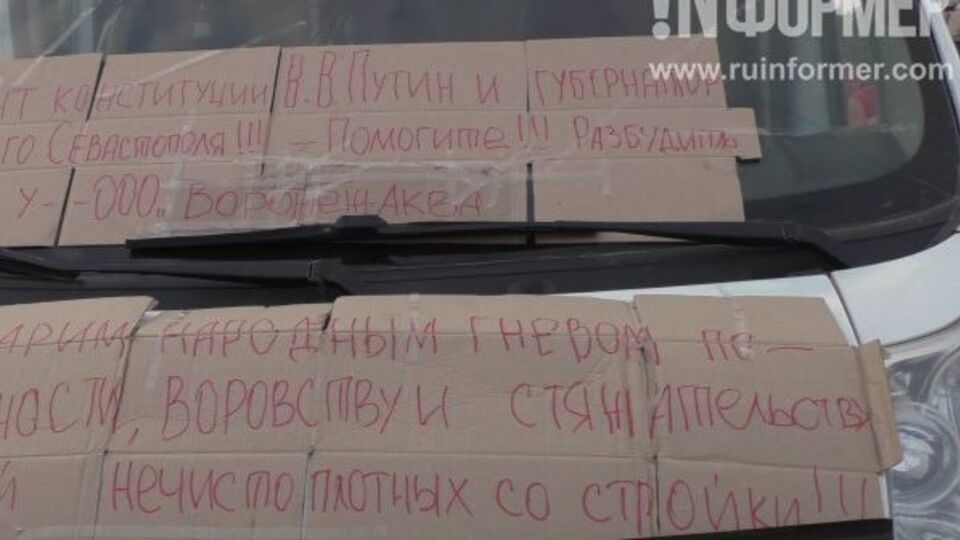 !NФОРМЕР
www.ruinformer.com
НТ КОНСТИТУЦИИ В.В.ПУТИН И ГУБЕРНАТОР
ГО СЕВАСТОПОЛЯ!!! - ПОМОГИТЕ!!! РАЗБУДИТЬ
У--ООО,, ВОРОНЕЖ-АКВА
АРИМ НАРОДНЫМ ГНЕВОМ ПО-
НОСТИ, ВОРОВСТВУ И СТЯЖАТЕЛЬСТВУ
Й НЕЧИСТОПЛОТНЫХ СО СТРОЙКИ!!!